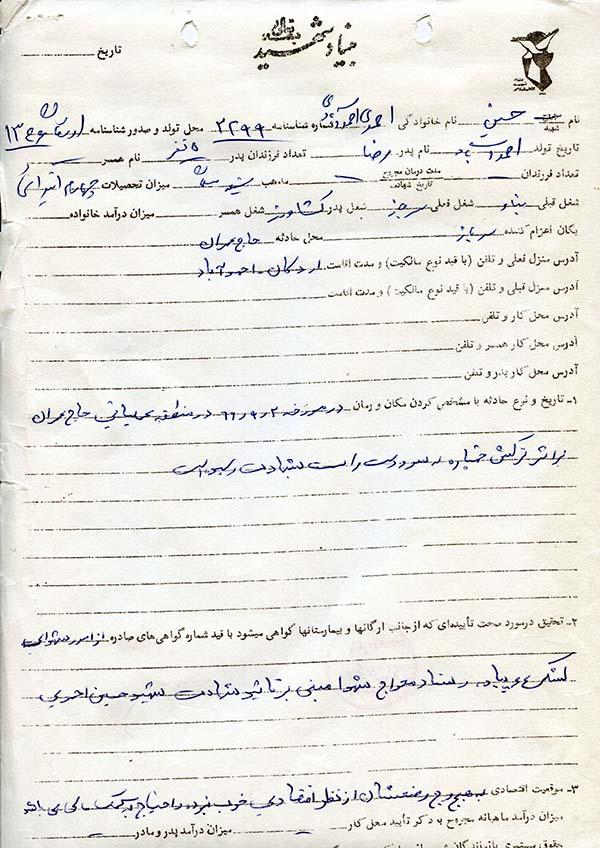 بسمه تعالی
بنیاد شهید
تاریخ
نام شهید حسین نام خانوادگی احمدی احمدآبادی شماره شناسنامه ۳۲۹۹ محل تولد و صدور شناسنامه اردکان ۱۳
تاریخ تولد احمدآباد نام پدر رضا تعداد فرزندان پدر ۵ نفر نام همسر
تعداد فرزندان مدت درمان مجروح تاریخ شهادت مذهب شیعه میزان تحصیلات چهارم ابتدائی
شغل قبلی بناء شغل فعلی سرباز شغل پدر کشاورز شغل همسر میزان درآمد خانواده
یگان اعزام کننده سرباز محل حادثه حاج عمران
آدرس منزل فعلی و تلفن (با قید نوع مالکیت) و مدت اقامت اردکان - احمدآباد
آدرس منزل قبلی و تلفن (با قید نوع مالکیت) و مدت اقامت
آدرس محل کار و تلفن
آدرس محل کار همسر و تلفن
آدرس محل کار پدر و تلفن
۱- تاریخ و نوع حادثه با مشخص کردن مکان و زمان در مورخه در منطقه عملیاتی حاج عمران
بر اثر ترکش خمپاره به سر و دست راست بشهادت رسیده است
۲- تحقیق درمورد صحت تأییدهای که از جانب ارگانها و بیمارستانها گواهی میشود با قید شماره گواهی‌های صادره از امور
لشکر ۶۴ پیاده و ستاد معراج شهدا مبنی بر تائید شهادت شهید حسین احمدی
۳- موقعیت اقتصادی به هیچ وجه وضعشان از نظر اقتصادی خوب نبوده و احتیاج به کمک مالی می باشد
میزان درآمد ماهیانه مجروح با ذکر تأیید محل کار میزان درآمد پدر و مادر